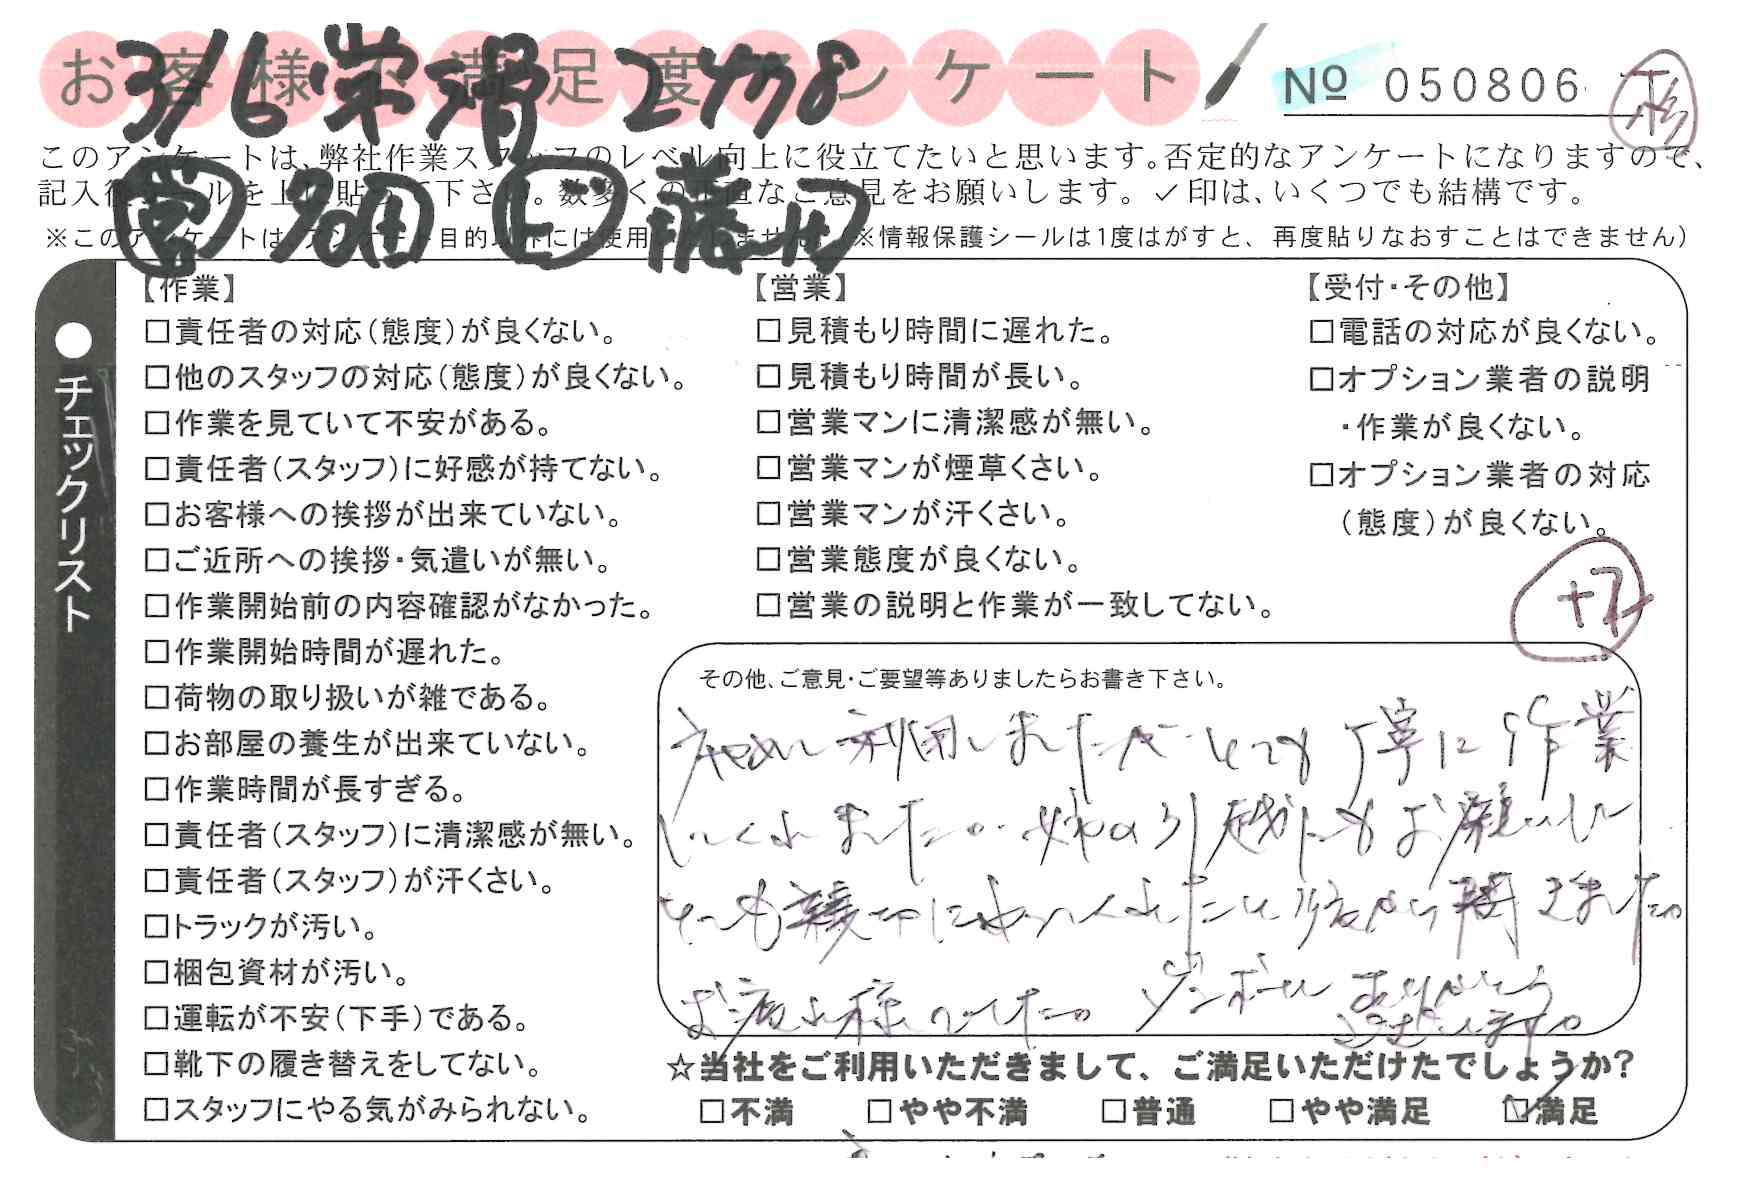 お客様不満足度アンケート
№ 050806
3/6 栄 滑 2478
このアンケートは、弊社作業スタッフのレベル向上に役立てたいと思います。否定的なアンケートになりますので、
記入後シールを上に貼って下さい。数多くの正直なご意見をお願いします。✓印は、いくつでも結構です。
※このアンケートは、アンケート目的以外には使用しません。(※情報保護シールは1度はがすと、再度貼りなおすことはできません)
営 畑 L 藤田
●チェックリスト
【作業】
□責任者の対応(態度)が良くない。
□他のスタッフの対応(態度)が良くない。
□作業を見ていて不安がある。
□責任者(スタッフ)に好感が持てない。
□お客様への挨拶が出来ていない。
□ご近所への挨拶・気遣いが無い。
□作業開始前の内容確認がなかった。
□作業開始時間が遅れた。
□荷物の取り扱いが雑である。
□お部屋の養生が出来ていない。
□作業時間が長すぎる。
□責任者(スタッフ)に清潔感が無い。
□責任者(スタッフ)が汗くさい。
□トラックが汚い。
□梱包資材が汚い。
□運転が不安(下手)である。
□靴下の履き替えをしてない。
□スタッフにやる気がみられない。
【営業】
□見積もり時間に遅れた。
□見積もり時間が長い。
□営業マンに清潔感が無い。
□営業マンが煙草くさい。
□営業マンが汗くさい。
□営業態度が良くない。
□営業の説明と作業が一致してない。
【受付・その他】
□電話の対応が良くない。
□オプション業者の説明
・作業が良くない。
□オプション業者の対応
(態度)が良くない。
+2
その他、ご意見・ご要望等ありましたらお書き下さい。
初めて利用しましたが とても丁寧に作業
してくれました。姉の引越しもお願いして
とても親切にやってくれたと彼から聞きました。
お疲れ様でした。ダンボールありがとう
☆当社をご利用いただきまして、ご満足いただけたでしょうか?
□不満 □やや不満 □普通 □やや満足 ☑満足